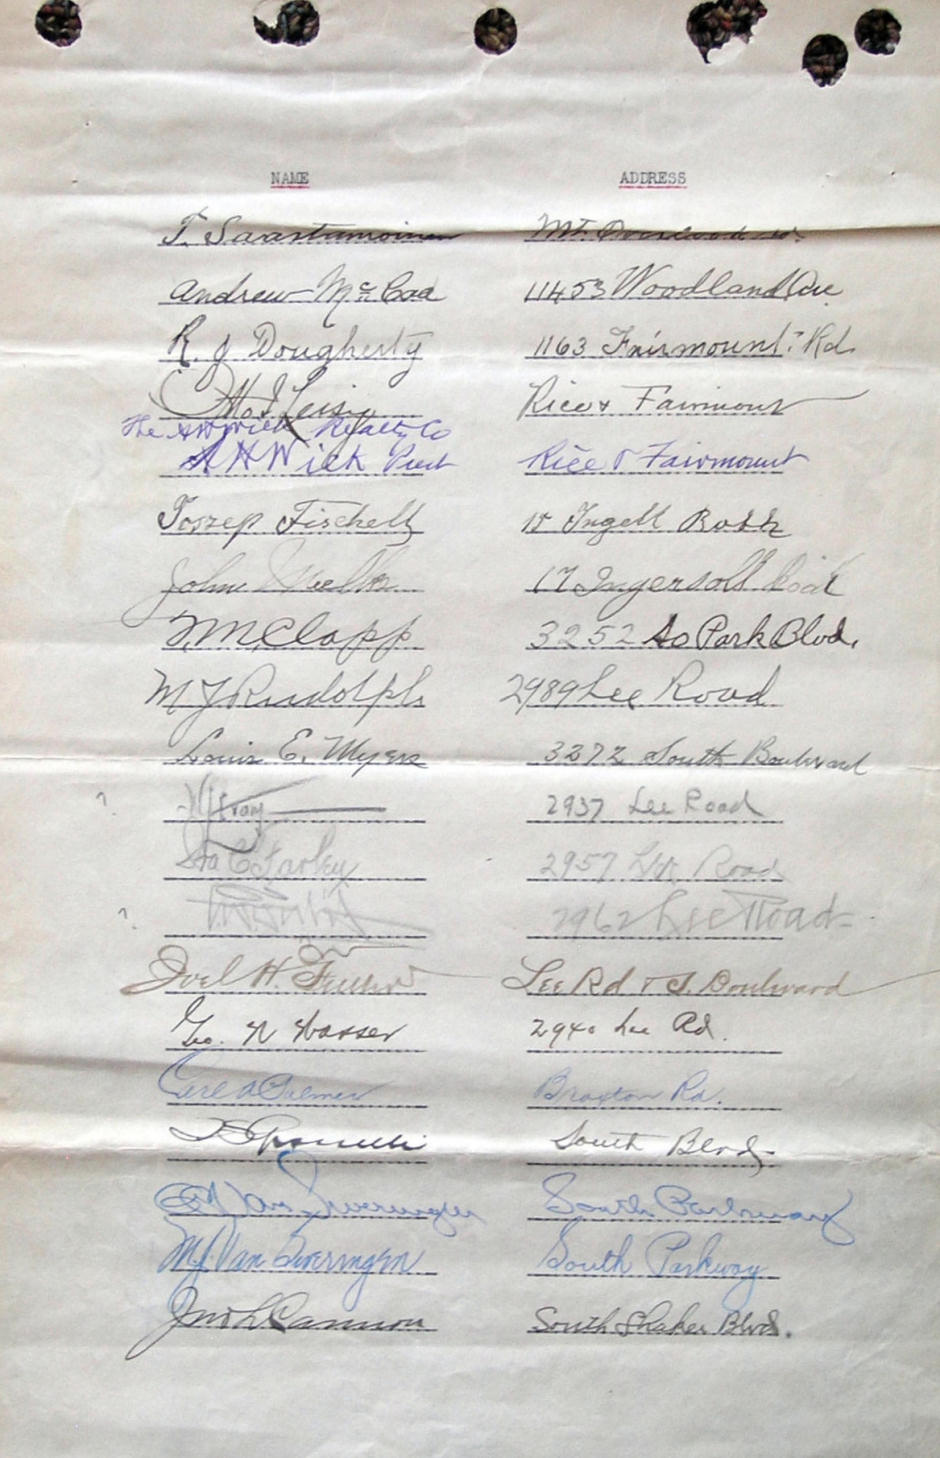 NAME ADDRESS
T. Saarstamoinen Mt.
Andrew McCoa 11453 Woodland Ave
R. J Dougherty 1163 Fairmount Rd.
Otto J Leisy Rice & Fairmount
The A H Wick Realty Co
A H Wick Prest Rice & Fairmount
Fischell 15
John 17 Ingersoll Road
M Clapp 3252 So Park Blvd.
M J Rudolph 2989 Lee Road
Louis E. Myers 3272 South Boulevard
? 2937 Lee Road
Farley 2957 Lee Road
? 2962 Lee Road
Joel H. Fuller Lee Rd & S. Boulevard
Geo. N Wasser 2940 Lee Rd.
Carl A Palmer Braxton Rd.
South Blvd.
Van Sweringen South Parkway
M J Van Sweringen South Parkway
Jno L Cannon South Shaker Blvd.